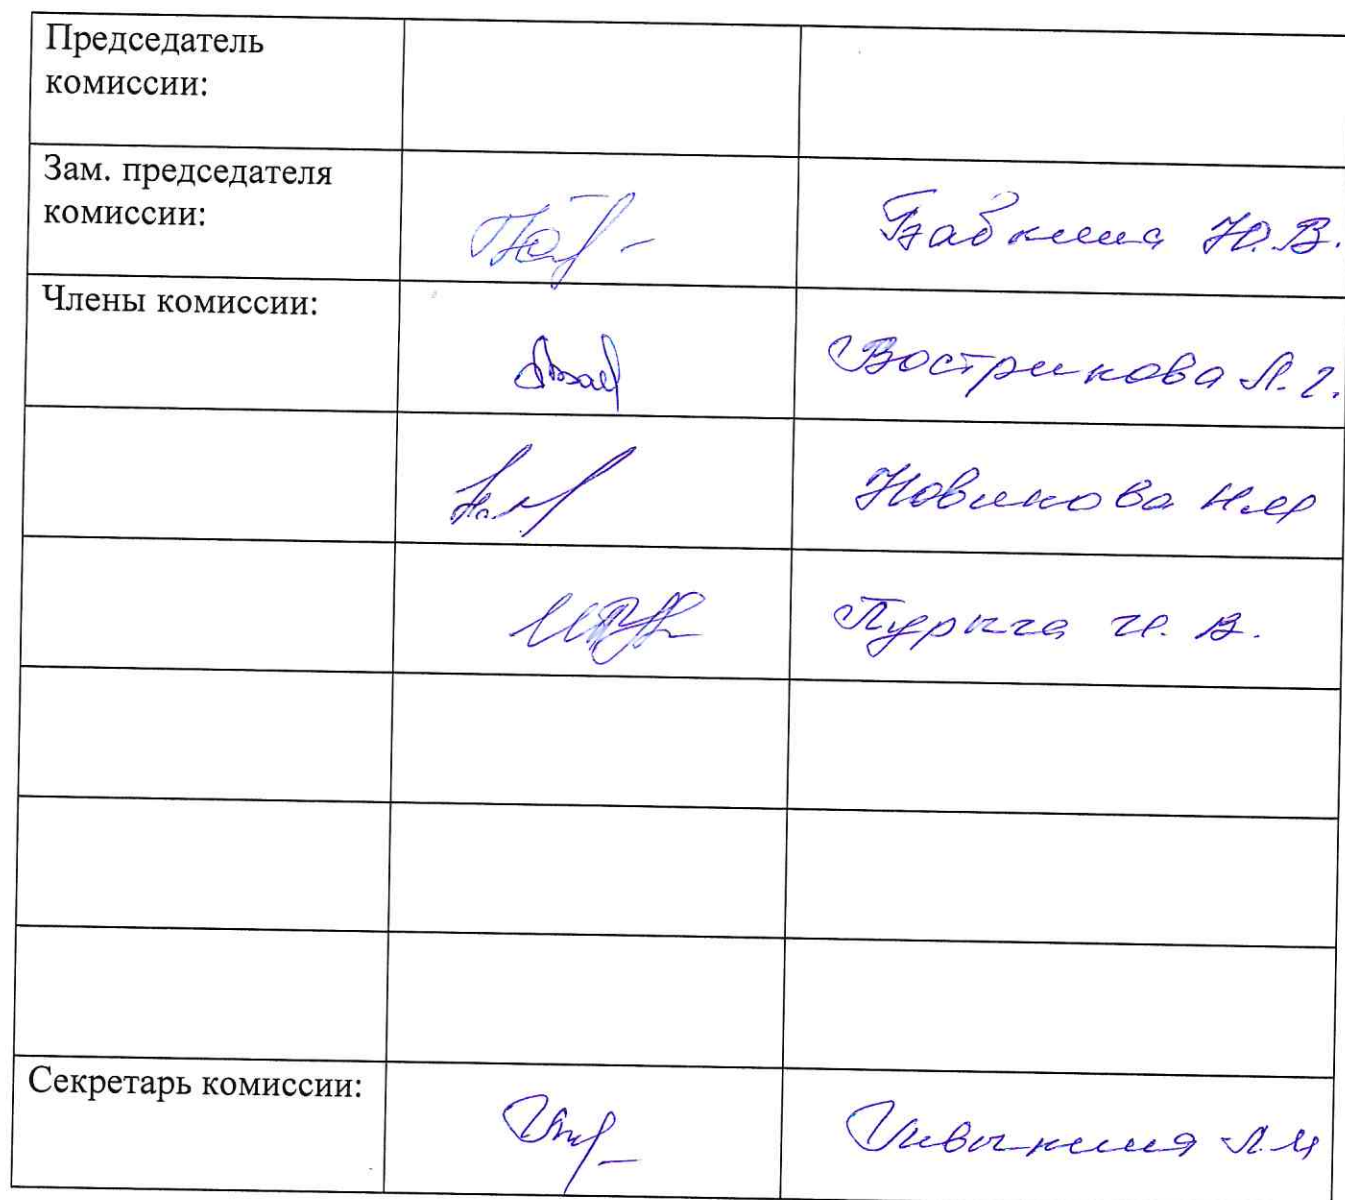 Председатель
комиссии:
Зам. председателя
комиссии:
Бабкина Ю.В.
Члены комиссии:
Вострикова Л.Г.
Новикова Н.М
Пурыга И. В.
Секретарь комиссии:
Л.И